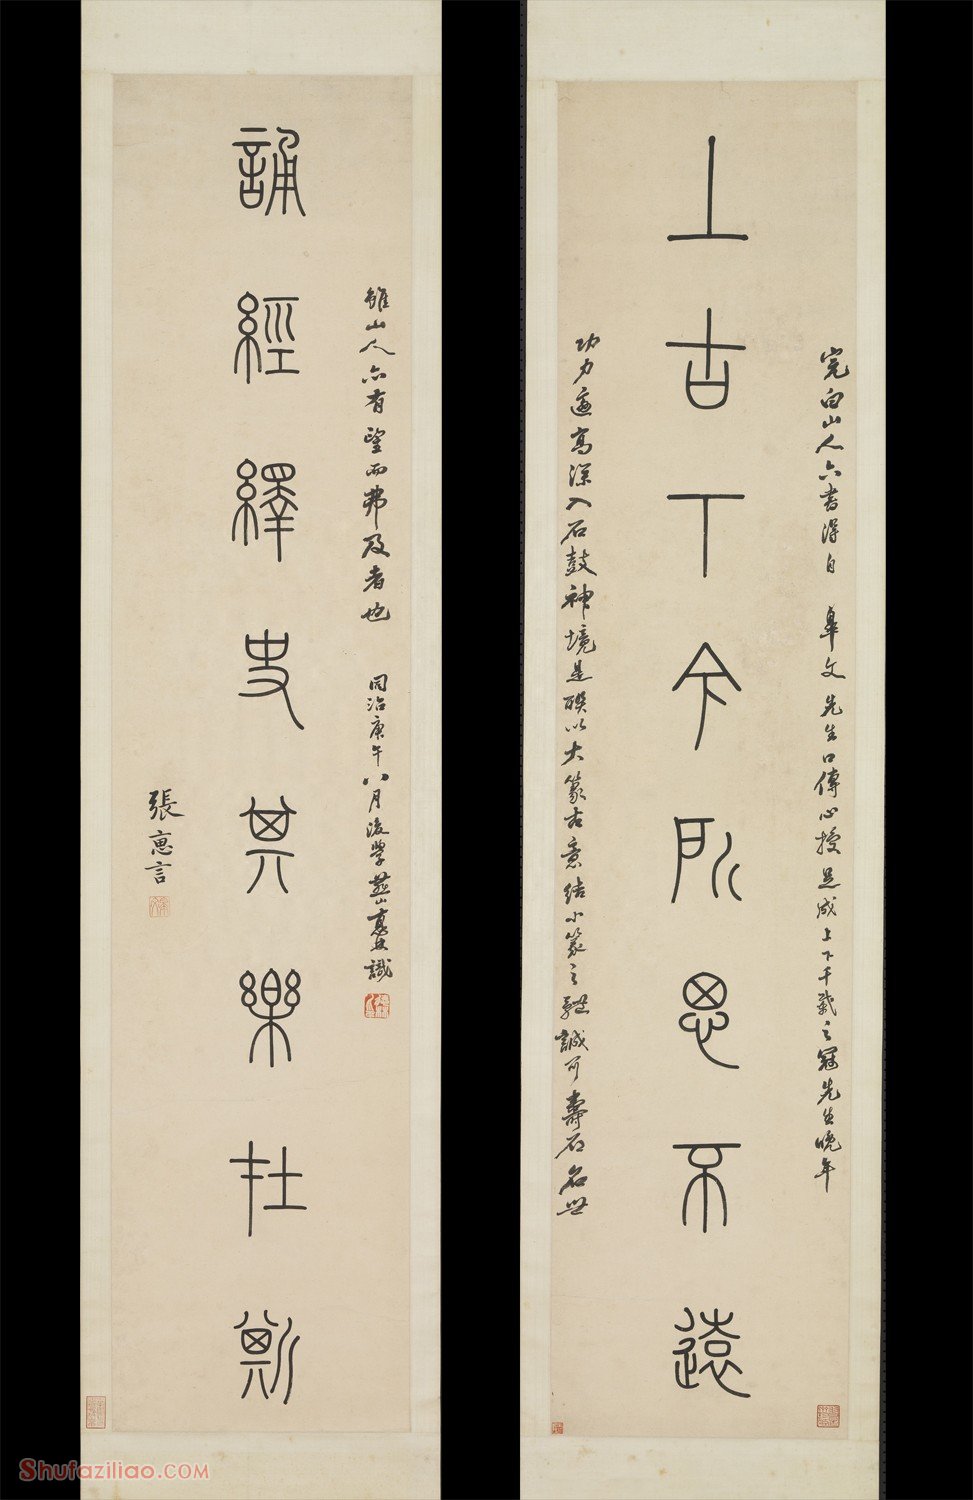 完白山人六書得自 皋文先生口傳心授是成上下千載之冠先生晚年
上古下今所思不遠
功力高深入石鼓神境是聯以大篆古意結小篆之體誠可壽石名世
雖山人亦有望而弗及者也 同治庚午八月後學燕山識
誦經繹史其樂在斯
張惠言
Shufaziliao.COM